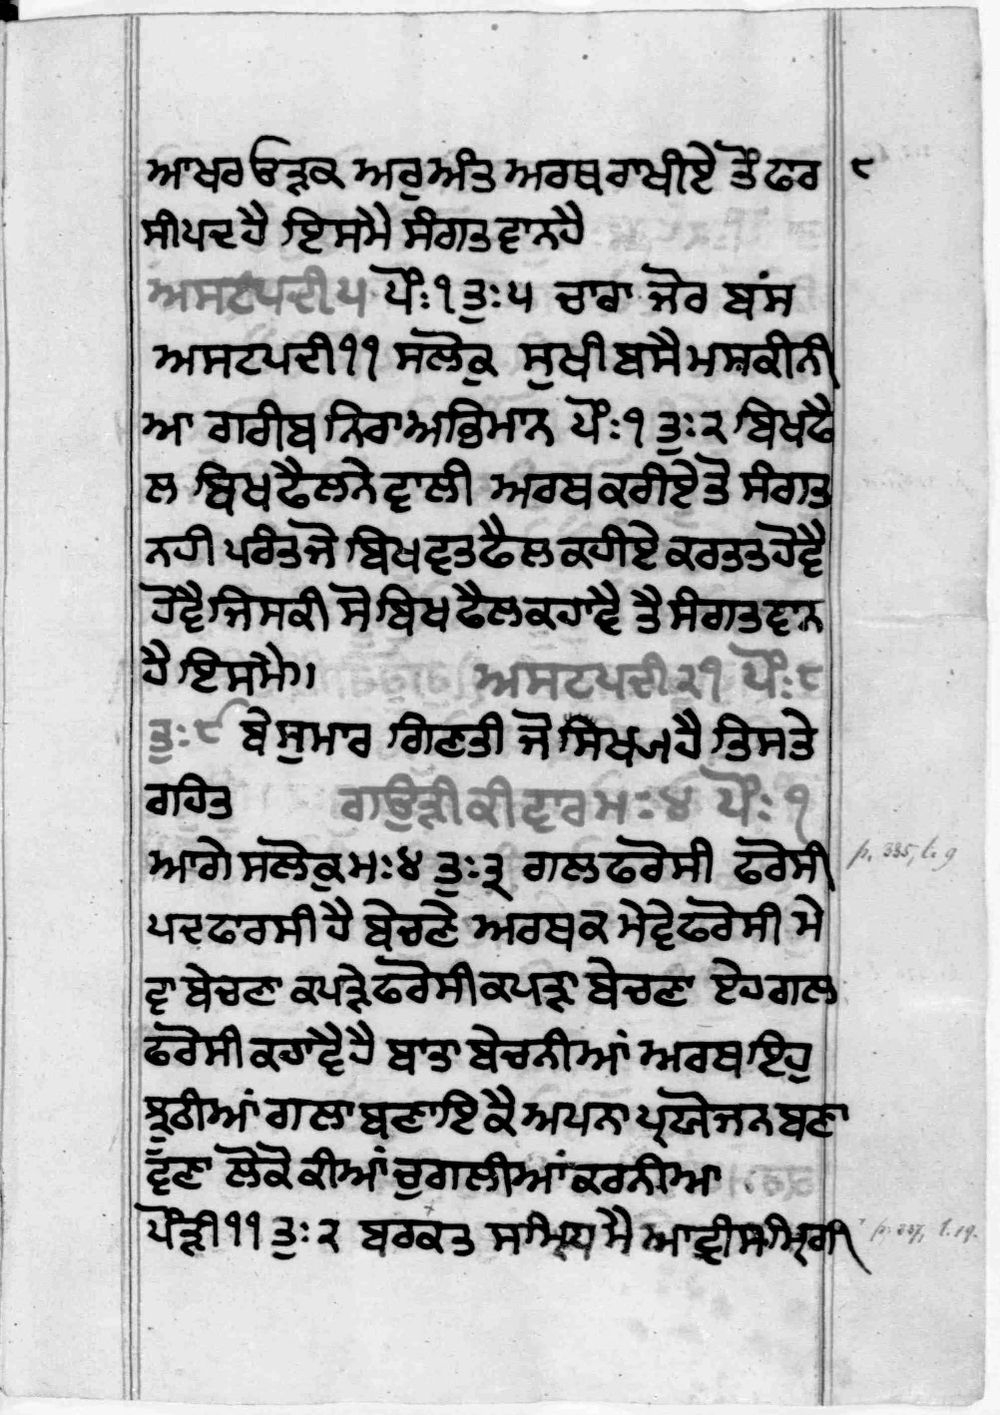 ਆਖਰ ਓੜਕ ਅਰੁ ਅੰਤ ਅਰਥ ਰਾਖੀਏ ਤੌ ਫਾਰ ੯
ਸੀ ਪਦ ਹੈ ਇਸ ਮੈ ਸੰਗਤ ਵਾਨ ਹੈ
ਅਸਟਪਦੀ ੫ ਪੌ: ੧ ਤੁ: ੫ ਚਾਰਾ ਜੋਰ ਬਸ
ਅਸਟਪਦੀ ੧੧ ਸਲੋਕੁ ਸੁਖੀ ਬਸੈ ਮਸਕੀਨੀ
ਆ ਗਰੀਬ ਨਿਰਾਅਭਿਮਾਨ ਪੌ: ੧ ਤੁ: ੨ ਬਿਖਫੈ
ਲ ਬਿਖ ਫੈਲਨੇ ਵਾਲੀ ਅਰਥ ਕਰੀਏ ਤੋ ਸੰਗਤ
ਨਹੀ ਪਰੰਤ ਜੋ ਬਿਖਵਤ ਫੈਲ ਕਹੀਏ ਕਰਤਤ ਹੋਵੈ
ਹੋਵੈ ਜਿਸਕੀ ਸੋ ਬਿਖ ਫੈਲ ਕਹਾਵੈ ਤੈ ਸੰਗਤ ਵਾਨ
ਹੈ ਇਸ ਮੈ॥ ਅਸਟਪਦੀ ੨੧ ਪੌ: ੮
ਤੁ: ੯ ਬੇਸੁਮਾਰ ਗਿਣਤੀ ਜੋ ਸਿਖਜ ਹੈ ਤਿਸ ਤੇ
ਰਹਿਤ ਗਉੜੀ ਕੀ ਵਾਰ ਮ: ੪ ਪੌ: ੧
ਆਗੇ ਸਲੋਕੁ ਮ: ੪ ਤੁ: ੩ ਗਲ ਫਰੋਸੀ ਫਰੋਸੀ p. 335, l. 9
ਪਦ ਫਾਰਸੀ ਹੈ ਬੇਚਣੇ ਅਰਥਕ ਮੇਵੇ ਫਰੋਸੀ ਮੇ
ਵਾ ਬੇਚਣਾ ਕਪੜੇ ਫਰੋਸੀ ਕਪੜਾ ਬੇਚਣਾ ਏਹ ਗਲ
ਫਰੋਸੀ ਕਹਾਵੈ ਹੈ ਬਾਤਾ ਬੇਚਨੀਆਂ ਅਰਥ ਇਹੁ
ਝੂਠੀਆਂ ਗਲਾ ਬਣਾਇ ਕੈ ਅਪਨਾ ਪ੍ਰਯੋਜਨ ਬਣਾ
ਵਣਾ ਲੋਕੋ ਕੀਆਂ ਚੁਗਲੀਆਂ ਕਰਨੀਆ
ਪੌੜੀ ੧੧ ਤੁ: ੨ ਬਰਕਤ ਮੈ p. 337, l. 19.